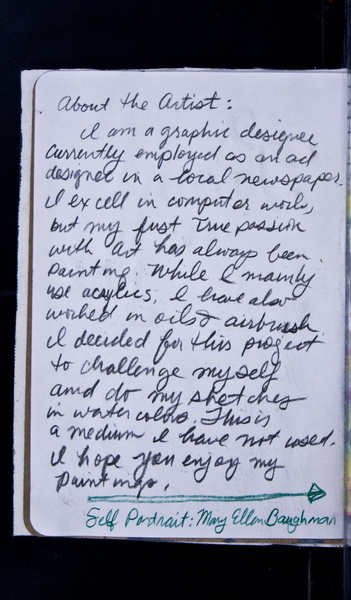 About the Artist:
I am a graphic designer
currently employed as an ad
designer in a local newspaper.
I excell in computer work,
but my first true passion
with art has always been
painting. While I mainly
use acrylics, I have also
worked in oils & airbrush
I decided for this project
to challenge myself
and do my sketches
in watercolors. This is
a medium I have not used.
I hope you enjoy my
paintings.
Self Portrait: Mary Ellen Baughman